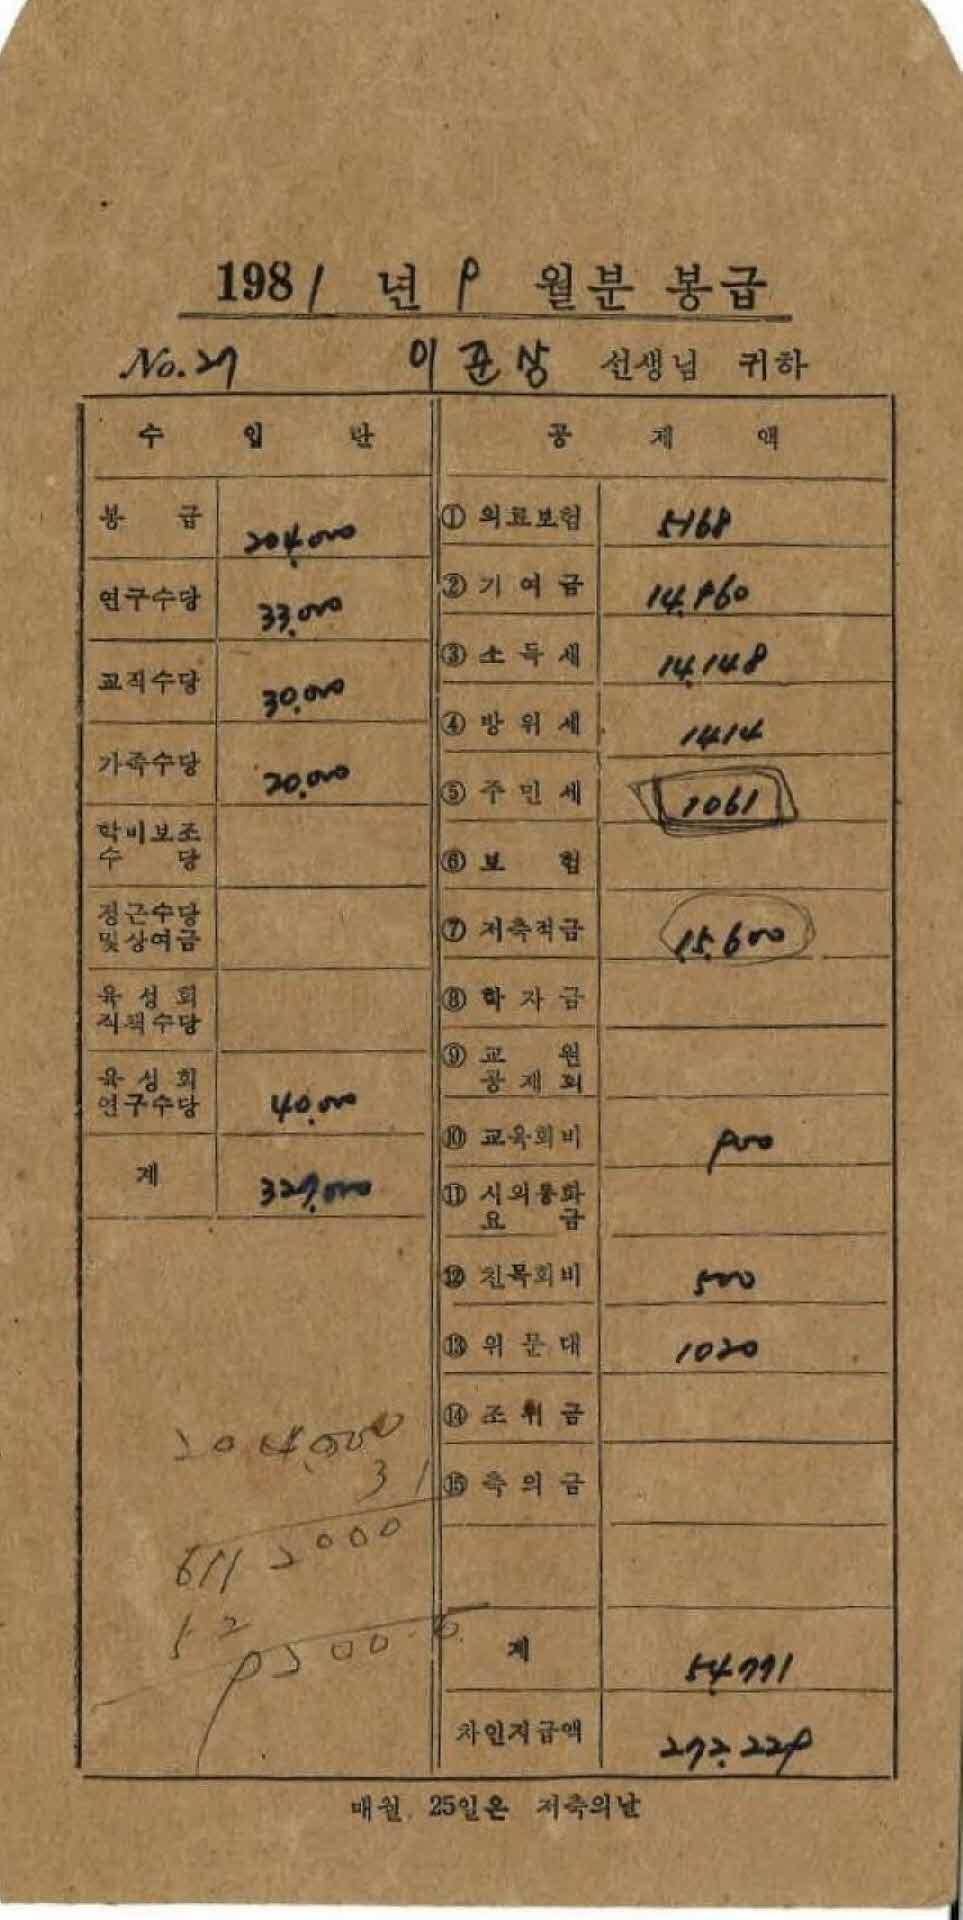 1981 년 9 월분 봉급
No. 27 이준상 선생님 귀하
수 입 란
봉 급 204,000
연구수당 33,000
교직수당 30,000
가족수당 20,000
학비보조
수 당
정근수당
및상여금
육 성 회
직책수당
육 성 회
연구수당 40,000
계 327,000
204,000
31
52
공 제 액
① 의료보험 5168
② 기 여 금 14,960
③ 소 득 세 14,148
④ 방 위 세 1414
⑤ 주 민 세 1061
⑥ 보 험
⑦ 저축적금 15,600
⑧ 학 자 금
⑨ 교 원
공 제 회
⑩ 교육회비 900
⑪ 시외통화
요 금
⑫ 친목회비 500
⑬ 위 문 대 1020
⑭ 조 위 금
⑮ 축 의 금
계 54,771
차인지급액 272,229
매월 25일은 저축의날